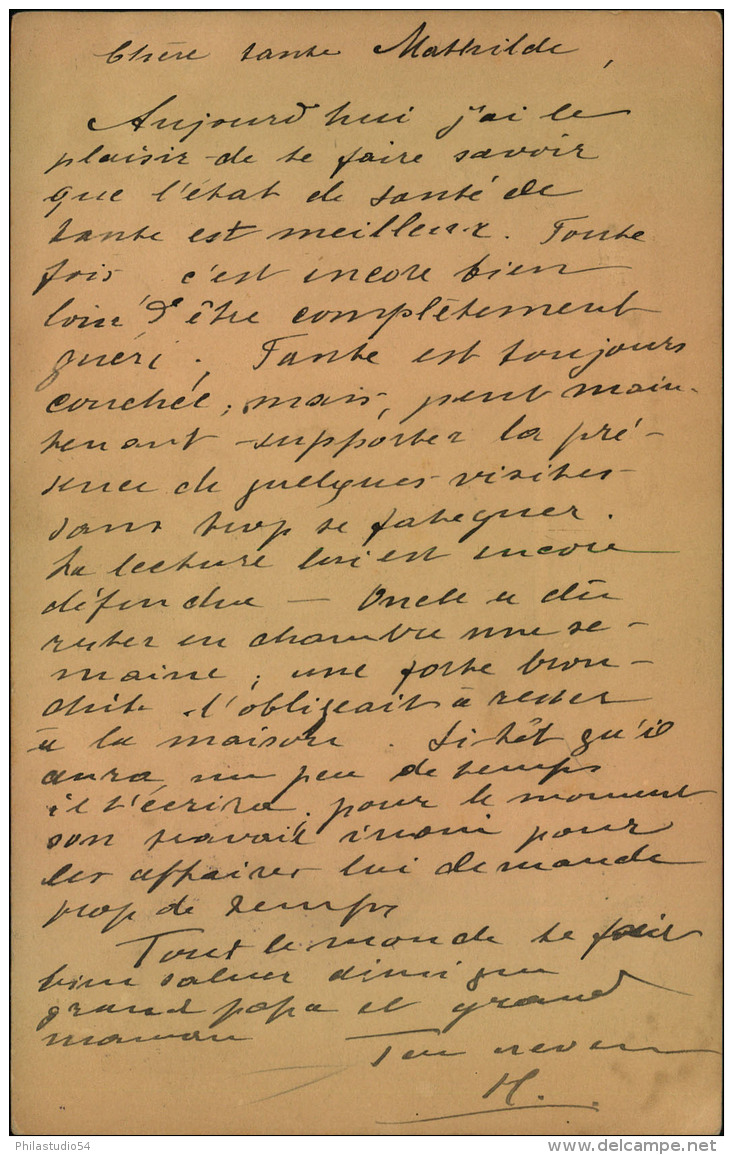 Chère tante Mathilde,
Aujourd'hui j'ai le
plaisir de te faire savoir
que l'état de santé de
tante est meilleur. Toute
fois c'est encore bien
loin d'être complètement
guéri. Tante est toujours
couchée, mais, peut main-
tenant supporter la pré-
sence de quelques visites
sans trop se fatiguer.
La lecture lui est encore
défendue — Oncle a dû
rester en chambre une se-
maine; une forte bron-
chite l'obligeait à rester
à la maison. Sitôt qu'il
aura un peu de temps
il t'écrira, pour le moment
son travail inoui pour
les affaires lui demande
trop de temps
Tout le monde te fait
bien saluer ainsi que
grand papa et grand
maman Ton neveu
H.
Philastudio54